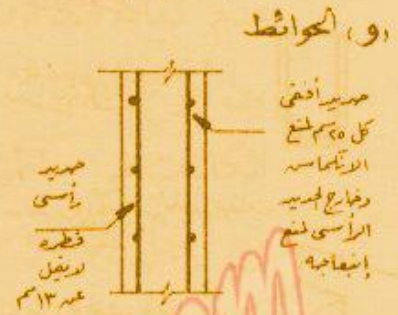 (و) الحوائط
حديد أفقي
كل ٢٥ سم لمنع
الانكماش
وخارج الحديد
الرأسي لمنع
إنبعاجه
حديد
رأسي
قطره
لا يقل
عن ١٣ مم